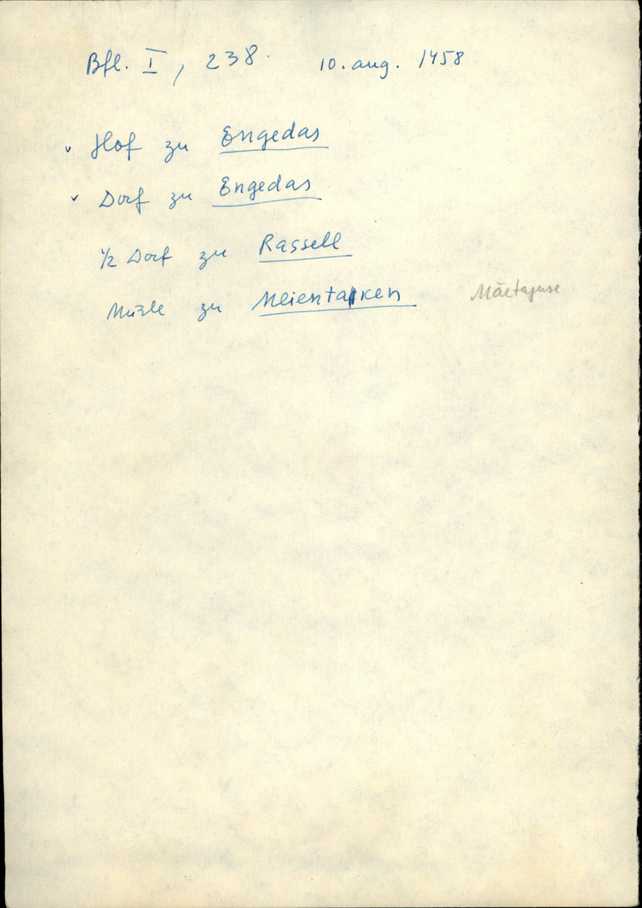 Bfl. I, 238. 10. aug. 1458
v Hof zu Engedas
v Dorf zu Engedas
1/2 Dorf zu Rassell
Mühle zu Meientacken Mäetaguse